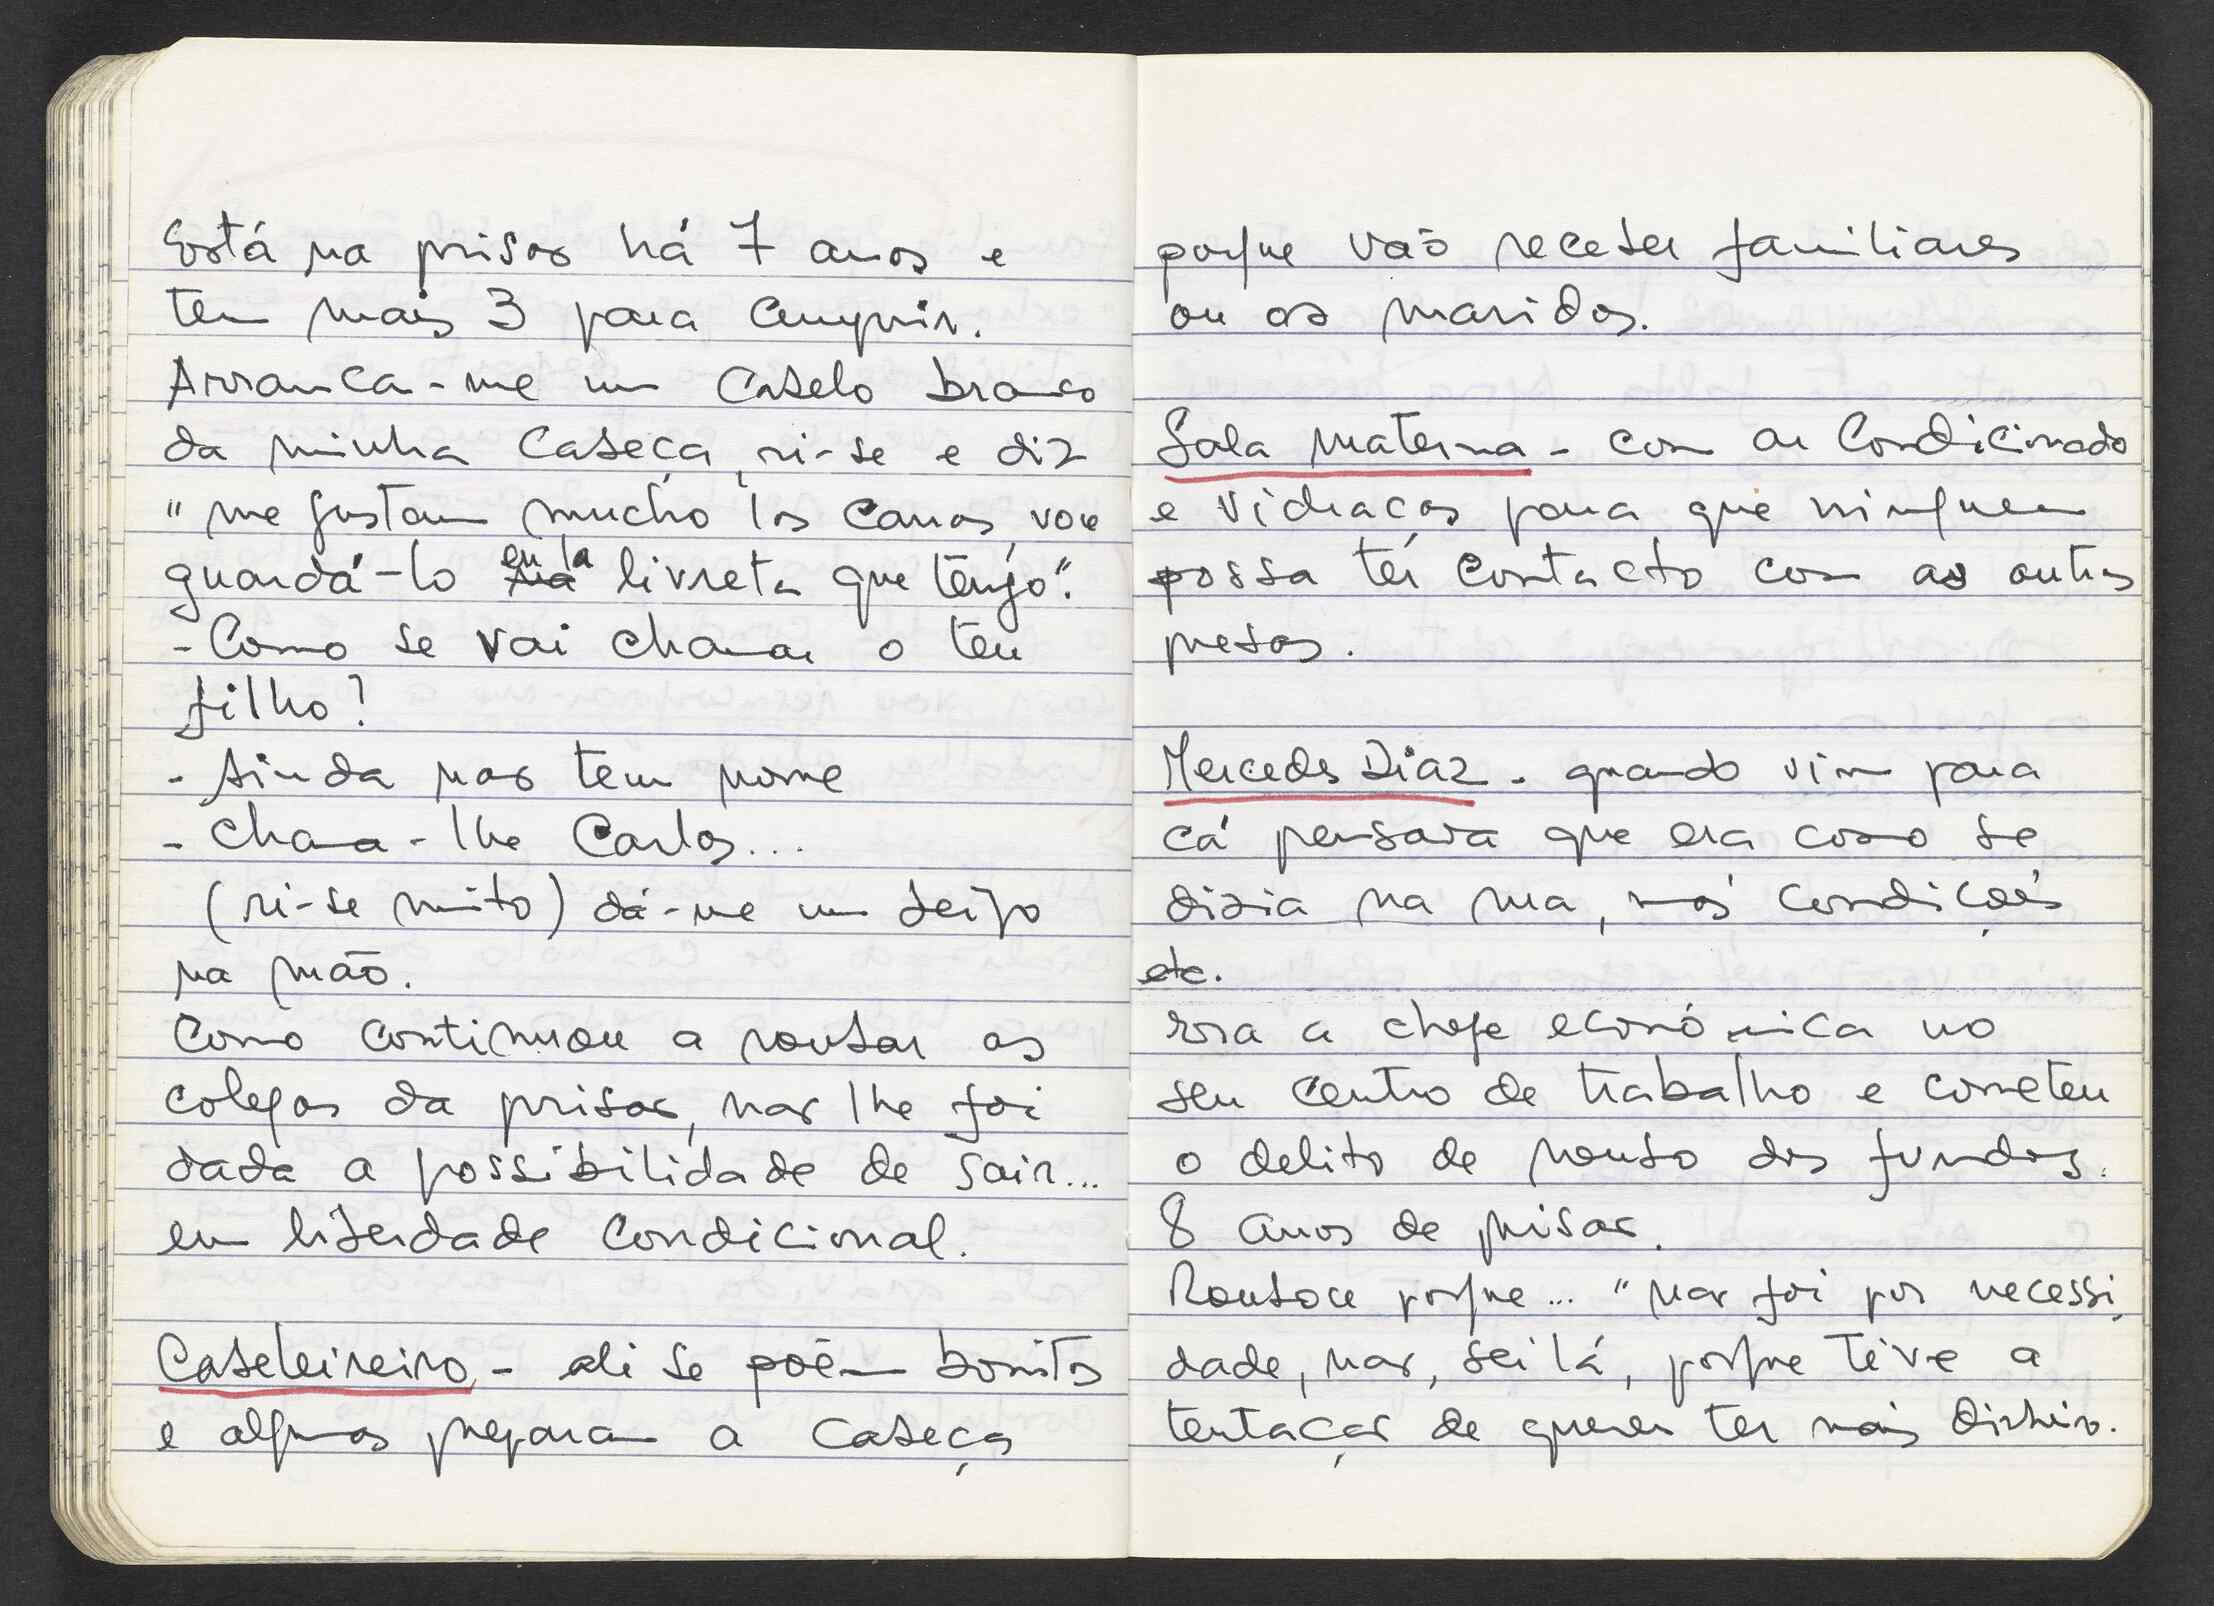 Está na prisão há 7 anos e
tem mais 3 para cumprir.
Arranca-me um cabelo branco
da minha cabeça, ri-se e diz
"me gustam mucho los canas, vou
guardá-lo en la livreta que tengo".
- Como se vai chamar o teu
filho?
- Ainda não tem nome
- Chama-lhe Carlos...
(ri-se muito) dá-me um beijo
na mão.
Como continuou a roubar as
colegas da prisão, não lhe foi
dada a possibilidade de sair...
em liberdade condicional.
Cabeleireiro - ali se põem bonitas
e algumas preparam a cabeça
porque vão receber familiares
ou os maridos.
Sala materna - com ar condicionado
e vidraças para que ninguem
possa ter contacto com as outras
presas.
Mercedes Diaz - quando vim para
cá pensava que era como se
dizia na rua, más condições
etc.
era a chefe económica no
seu centro de trabalho e cometeu
o delito de roubo dos fundos.
8 anos de prisão.
Roubou porque... "não foi por necessi
dade, não, sei lá, porque teve a
tentação de querer ter mais dinheiro.